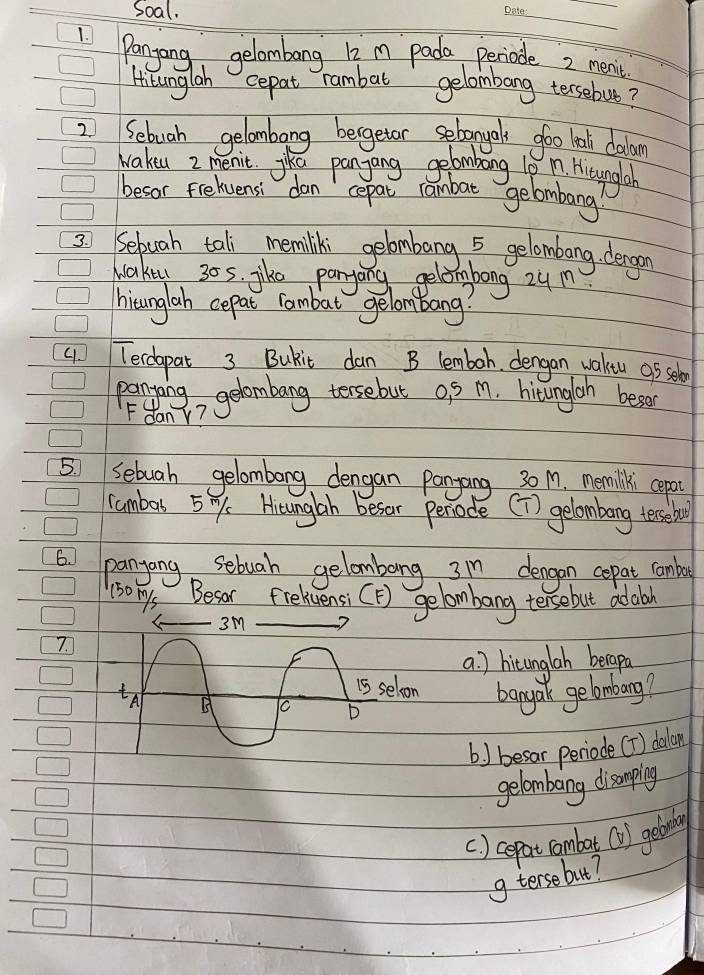 Soal.
Date:
1. Panjang gelombang 12 m pada periode 2 menit.
Hitunglah cepat rambat gelombang tersebut?
2. Sebuah gelombang bergetar sebanyak 900 kali dalam
waktu 2 menit. jika panjang gelombang 10 m. Hitunglah
besar Frekuensi dan cepat rambat gelombang?
3. Sebuah tali memiliki gelombang 5 gelombang. dengan
waktu 30 s. jika panjang gelombang 24 m.
hitunglah cepat rambat gelombang?
4. Terdapat 3 Bukit dan 3 lembah. dengan waktu 0,5 sekon
panjang gelombang tersebut 0,5 m. hitunglah besar
F dan V?
5. Sebuah gelombang dengan Panjang 30 m. memiliki cepat
rambat 5 m/s Hitunglah besar periode (T) gelombang tersebut
6. panjang sebuah gelombang 3 m dengan cepat rambat
150 m/s Besar frekuensi (F) gelombang tersebut adalah
3 M
7.
t A B C D 15 sekon
a.) hitunglah berapa
banyak gelombang?
b.) besar periode (T) dalam
gelombang disamping
c.) cepat rambat (v) gelomban
g tersebut?